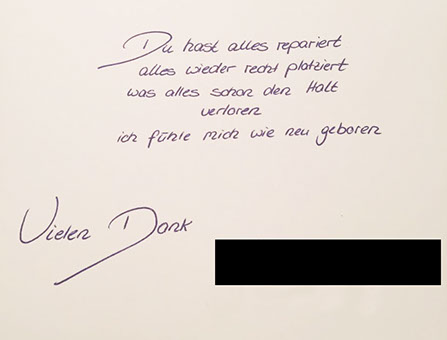 Du hast alles repariert
alles wieder recht platziert
was alles schon den Halt
verloren
ich fühle mich wie neu geboren
Vielen Dank